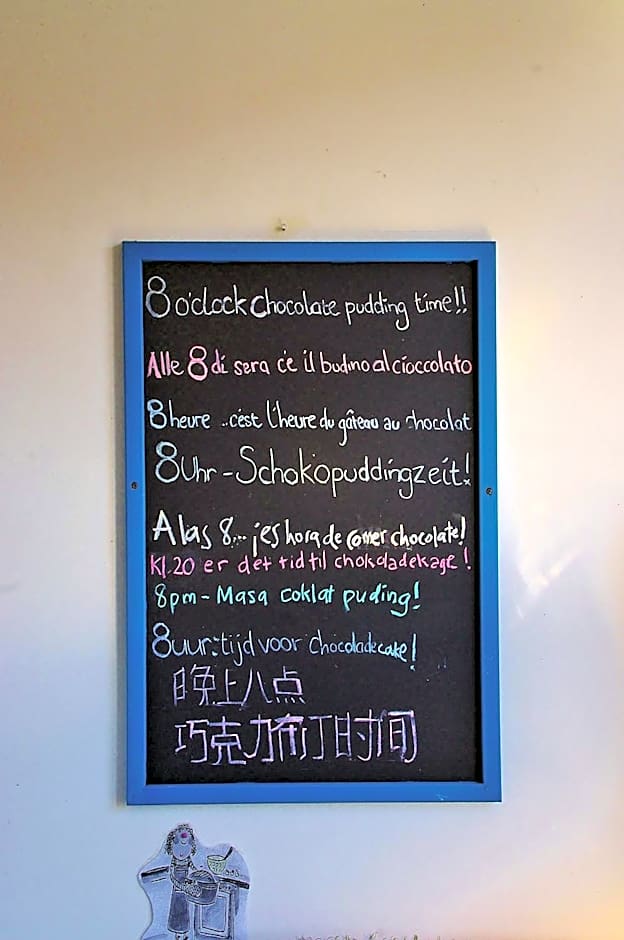 8 o'clock chocolate pudding time!!
Alle 8 di sera c'e il budino al cioccolato
8 heure ..c'est l'heure du gâteau au chocolat
8 Uhr - Schokopuddingzeit!
A las 8... ¡es hora de comer chocolate!
Kl.20 er det tid til chokoladekage!
8pm - Masa coklat puding!
8 uur: tijd voor chocoladecake!
晚上八点
巧克力布丁时间